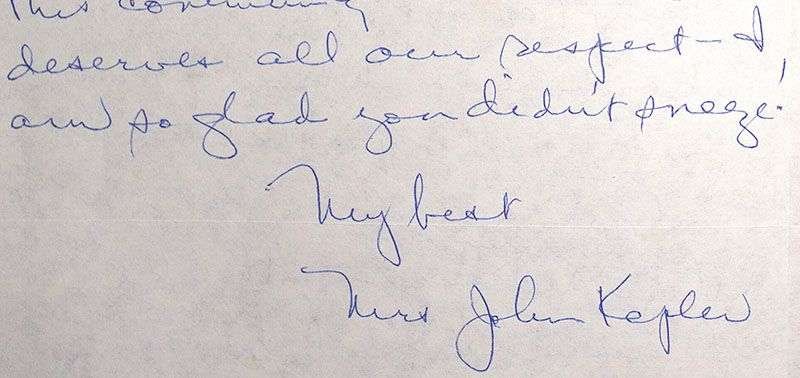 This community
deserves all our respect - I
am so glad you didn't sneeze!
My best
Mrs John Kepler